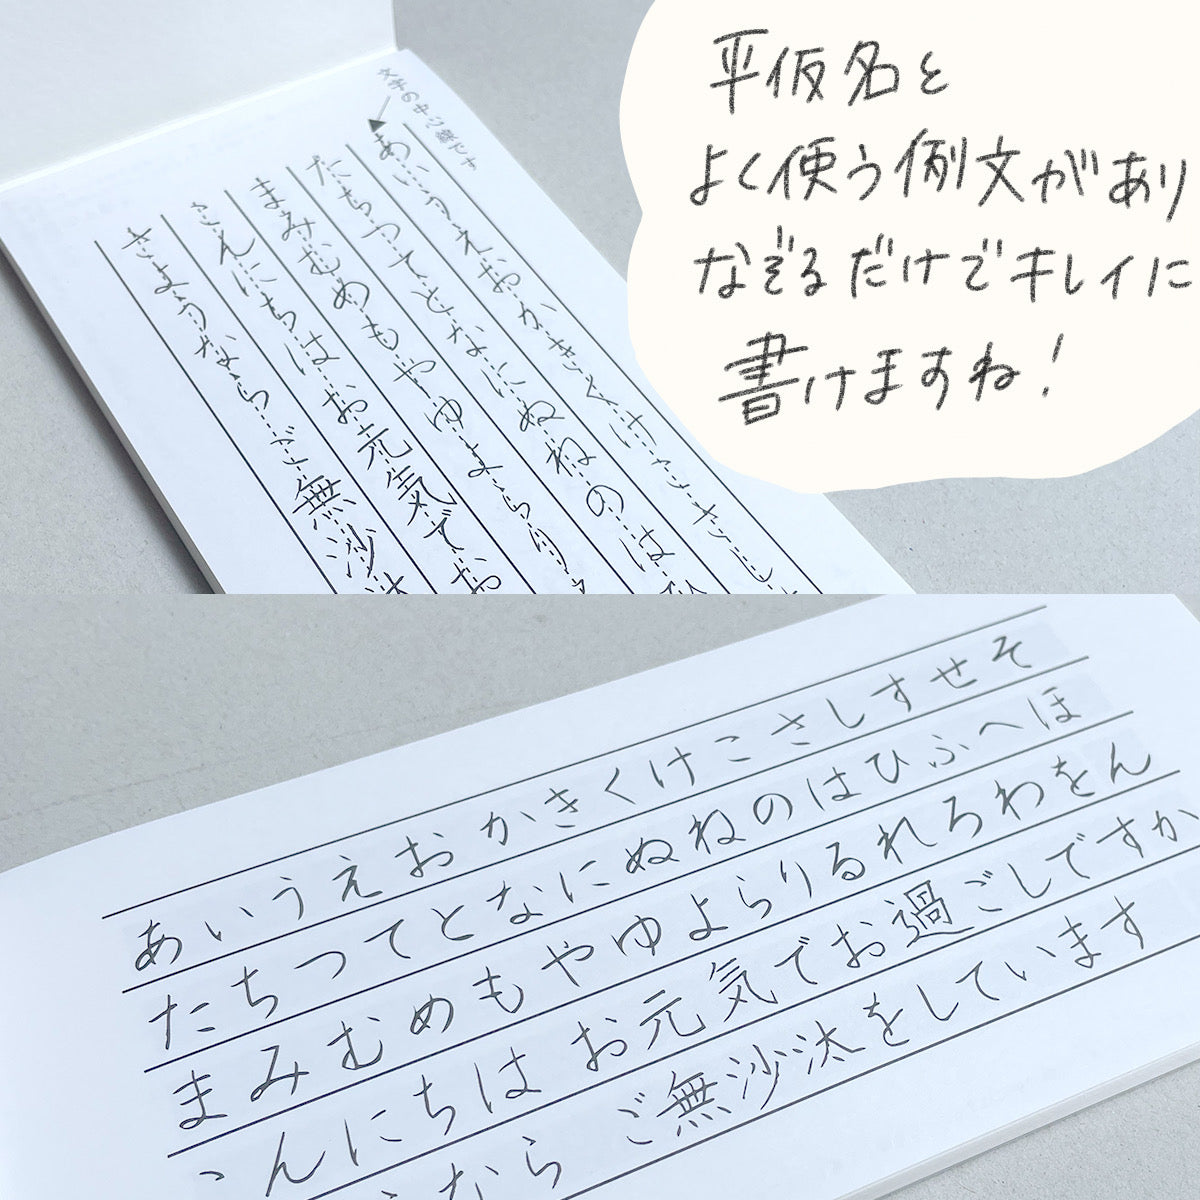 平仮名と
よく使う例文があり
なぞるだけでキレイに
書けますね!
文字の中心線です
あいうえおかきくけこさしす
たちつてとなにぬねのはひ
まみむめもやゆよらりる
こんにちはお元気でお
さようならご無沙汰
あいうえおかきくけこさしすせそ
たちつてとなにぬねのはひふへほ
まみむめもやゆよらりるれろわをん
こんにちはお元気でお過ごしですか
うならご無沙汰をしています